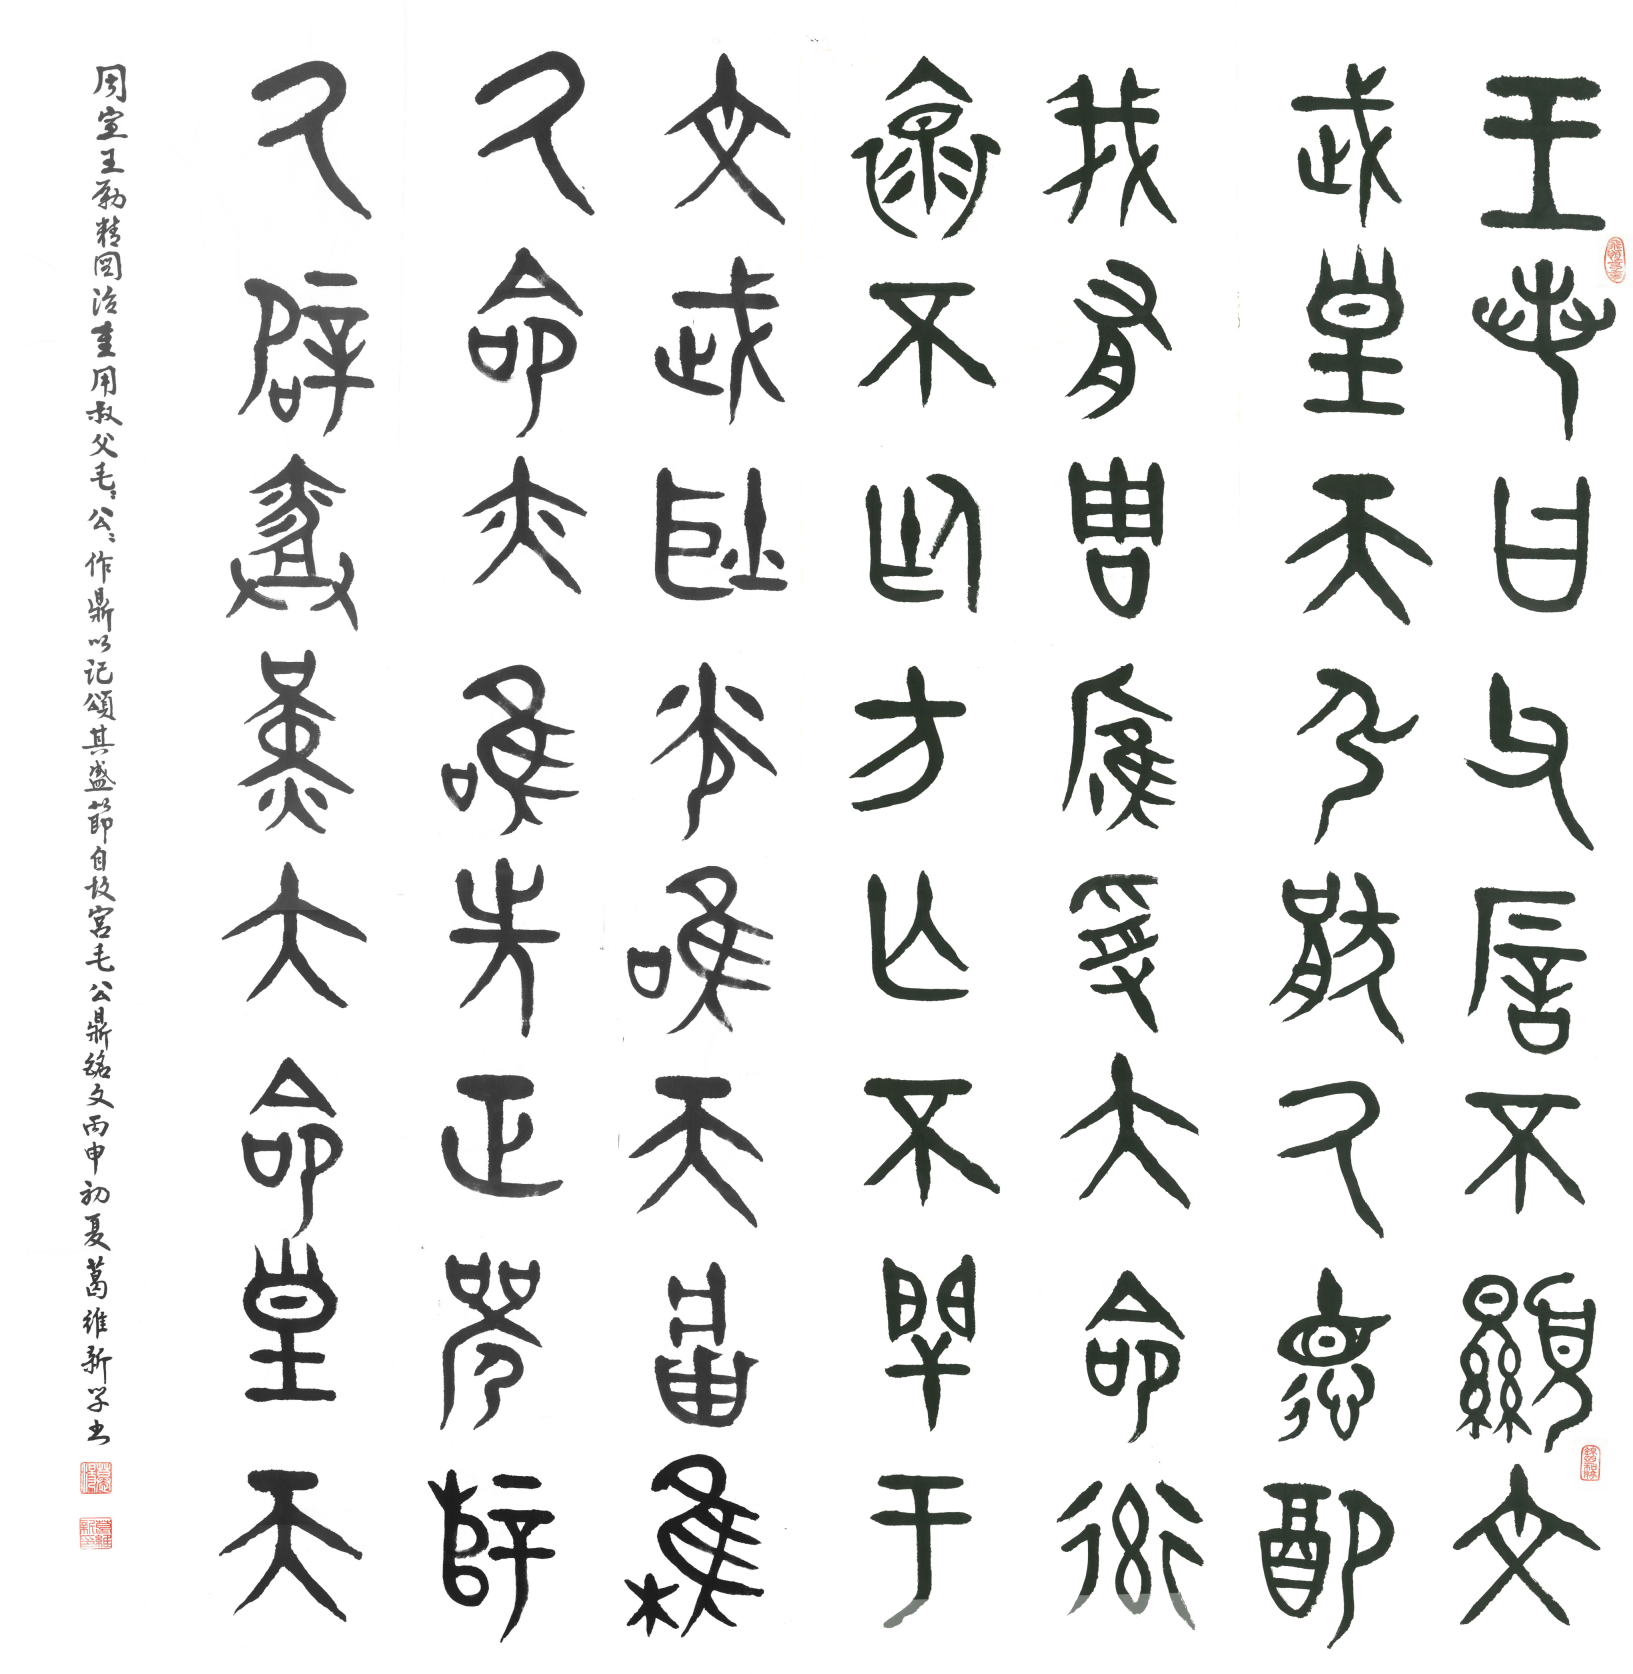 王若曰父厝不顯文
武皇天引厭厥德配
我有周膺受大命率
懷不廷方亡不閈于
文武耿光唯天將集
厥命亦唯先正襄辥
厥辟勞堇大命皇天
周宣王勤精图治重用叔父毛:公:作鼎以记頌其盛節自故宮毛公鼎铭文丙申初夏葛維新学书